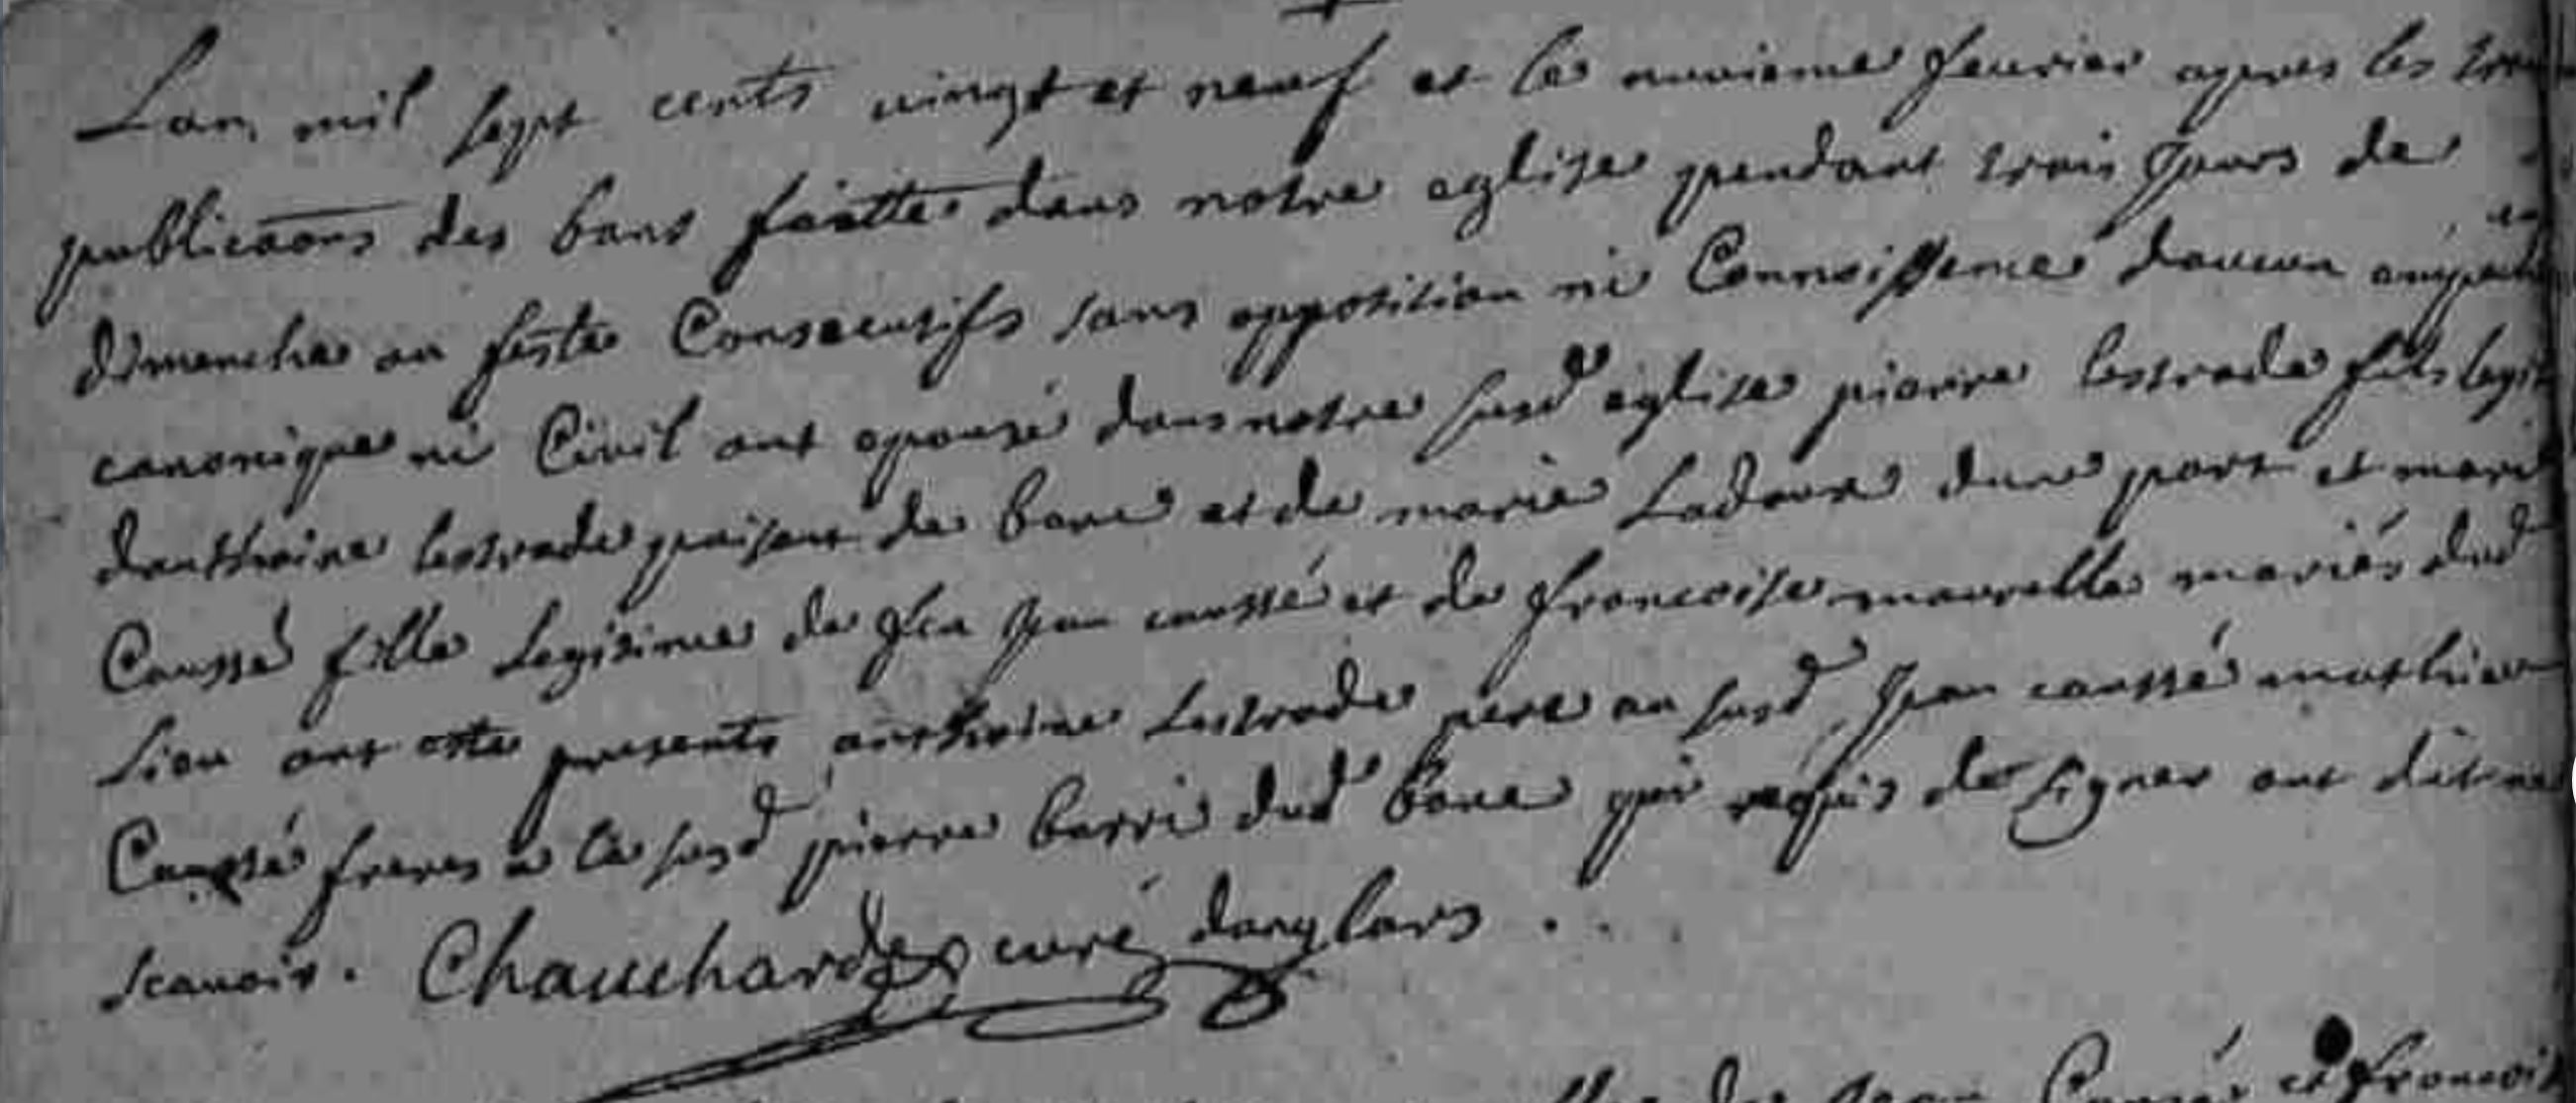 Lan mil sept cents vingt et neuf et le nuvieme feurier apres les
publicaons des bans faitte dans notre eglise pendant trois jours de
dimenche ou feste Consecutifs sans opposition ni Connoissence daucun
canonique ni Civil ont epousé dans notre susd eglise pierre lestrade fils legit
danthoine lestrade paisant de bane et de marie Ladoux dune part et mari
Caussé fille Legitime de feu jean caussé et de francoise maurelle mariés dud
Lieu ont este presents anthoine Lestrade pere au susd jean caussé mathieu
Caussé freres a la susd pierre barri dud bane qui requis de signer ont dit ne
scauoir. Chauchardes curé danglars.
de jean Caussé et francois